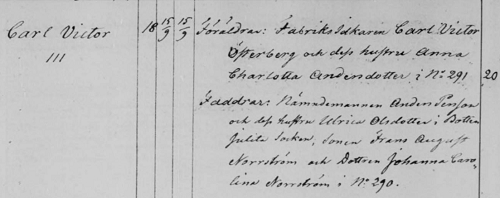 Carl Victor
III
18 15/9 15/9
Föräldrar: Fabriks Idkaren Carl Victor
Österberg och dess hustru Anna
Charlotta Andersdotter i No 291
20
Faddrar: Nämndemannen Anders Persson
och dess hustru Ulrica Olsdotter i
Julita Socken, Sonen Frans August
Norrström och Dottren Johanna Caro-
lina Norrström i No 290.